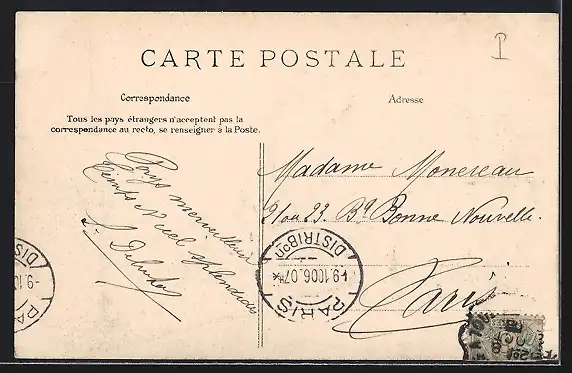 CARTE POSTALE
Correspondance
Adresse
Tous les pays étrangers n'acceptent pas la
correspondance au recto, se renseigner à la Poste.
Pays merveilleux
Temps & ciel splendides
Madame Monereau
21 ou 23. Bd Bonne Nouvelle.
Paris
PARIS
DISTRIBON
9.10 06.07
PARIS
DIS
9.10